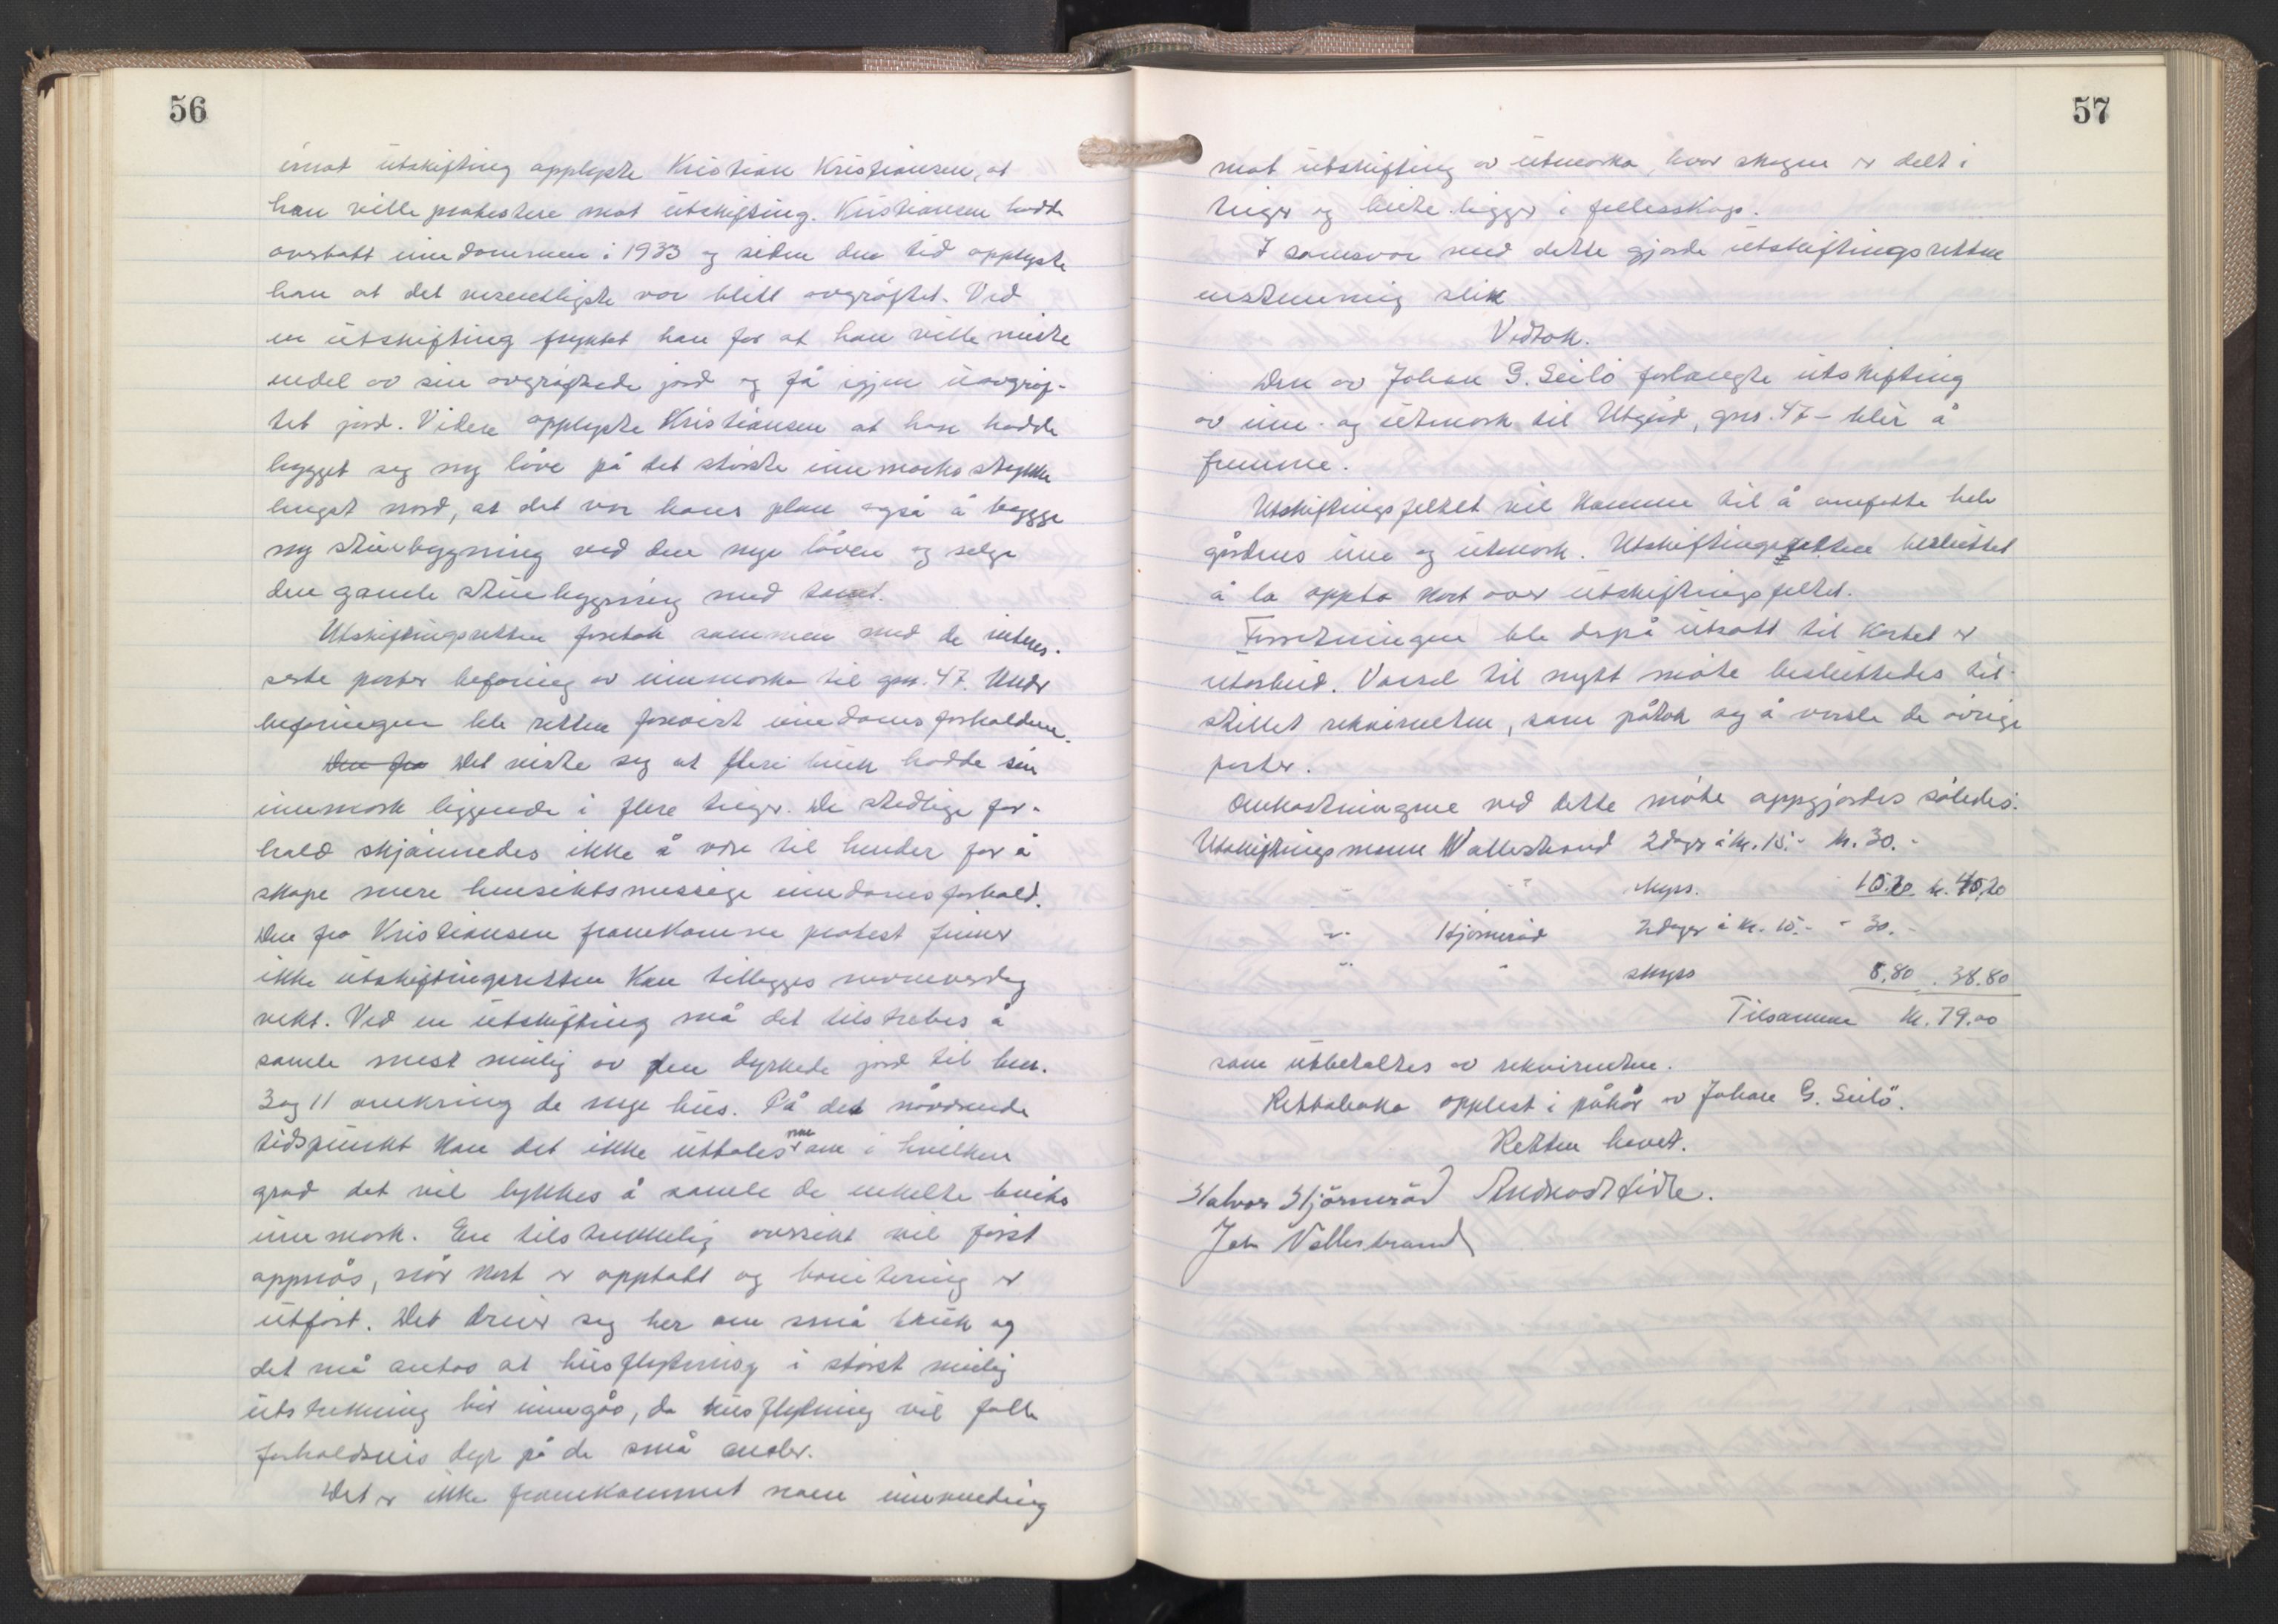 56
imot utskifting opplyste Kristian Kristiansen, at
han ville protestere mot utskifting. Kristiansen hadde
overtatt eiendommen i 1933 og siden den tid opplyste
han at det vesentligste var blitt avgrøftet. Ved
en utskifting fryktet han for at han ville miste
endel av sin avgrøftede jord og få igjen uavgrøf-
tet jord. Videre opplyste Kristiansen at han hadde
bygget seg ny løve på det største innmarksstykke
lengst nord, at det var hans plan også å bygge
ny stuebygning ved den nye løven og selge
den gamle stuebygning med tomt.
Utskiftingsretten foretok sammen med de interes-
serte parter befaring av innmarka til gnr. 47. Under
befaringen ble retten forevist eiendomsforholdene.
Den fra Det viste seg at flere bruk hadde sin
innmark liggende i flere teiger. De stedlige for-
hold skjønnedes ikke å være til hinder for å
skape mere hensiktsmessige eiendomsforhold.
Den fra Kristiansen framkomne protest finner
ikke utskiftingsretten kan tillegges nevneverdig
vekt. Ved en utskifting må det tilstrebes å
samle mest mulig av den dyrkede jord til bnr.
3 og 11 omkring de nye hus. På det nåværende
tidspunkt kan det ikke uttales noe om i hvilken
grad det vil lykkes å samle de enkelte bruks
innmark. En tilstrekkelig oversikt vil først
oppnås, når kart er opptatt og bonitering er
utført. Det dreier seg her om små bruk og
det må antas at husflytning i størst mulig
utstrekning bør unngås, da husflytning vil falle
forholdsvis dyr på de små andeler.
Det er ikke framkommet noen innvending
57
mot utskifting av utmarka, hvor skogen er delt i
teiger og beite ligger i fellesskap.
I samsvar med dette gjorde utskiftingsretten
enstemmig slik
Vedtak.
Den av Johan G. Seilö forlangte utskifting
av inn- og utmark til Utgård, gnr. 47 – blir å
fremme.
Utskiftingsfeltet vil komme til å omfatte hele
gårdens inn og utmark. Utskiftingsretten besluttet
å la oppta kart over utskiftingsfeltet.
Forretningen ble derpå utsatt til kartet er
utarbeid. Varsel til nytt møte besluttedes til-
stillet rekvirenten, som påtok seg å varsle de øvrige
parter.
Omkostningene ved dette møte oppgjordes således:
Utskiftingsmann Wallestrand 2 dager à kr. 15.- kr. 30.-
" " skyss. 10.20 kr. 40,20
" Hjörnerød 2 dager à kr. 15.- " 30.-
" " skyss 8.80 " 38.80
Tilsammen kr. 79.00
som utbetaltes av rekvirenten.
Rettsboka opplest i påhør av Johan G. Seilö.
Retten hevet.
Halvor Hjörnerød
Joh Vallestrand